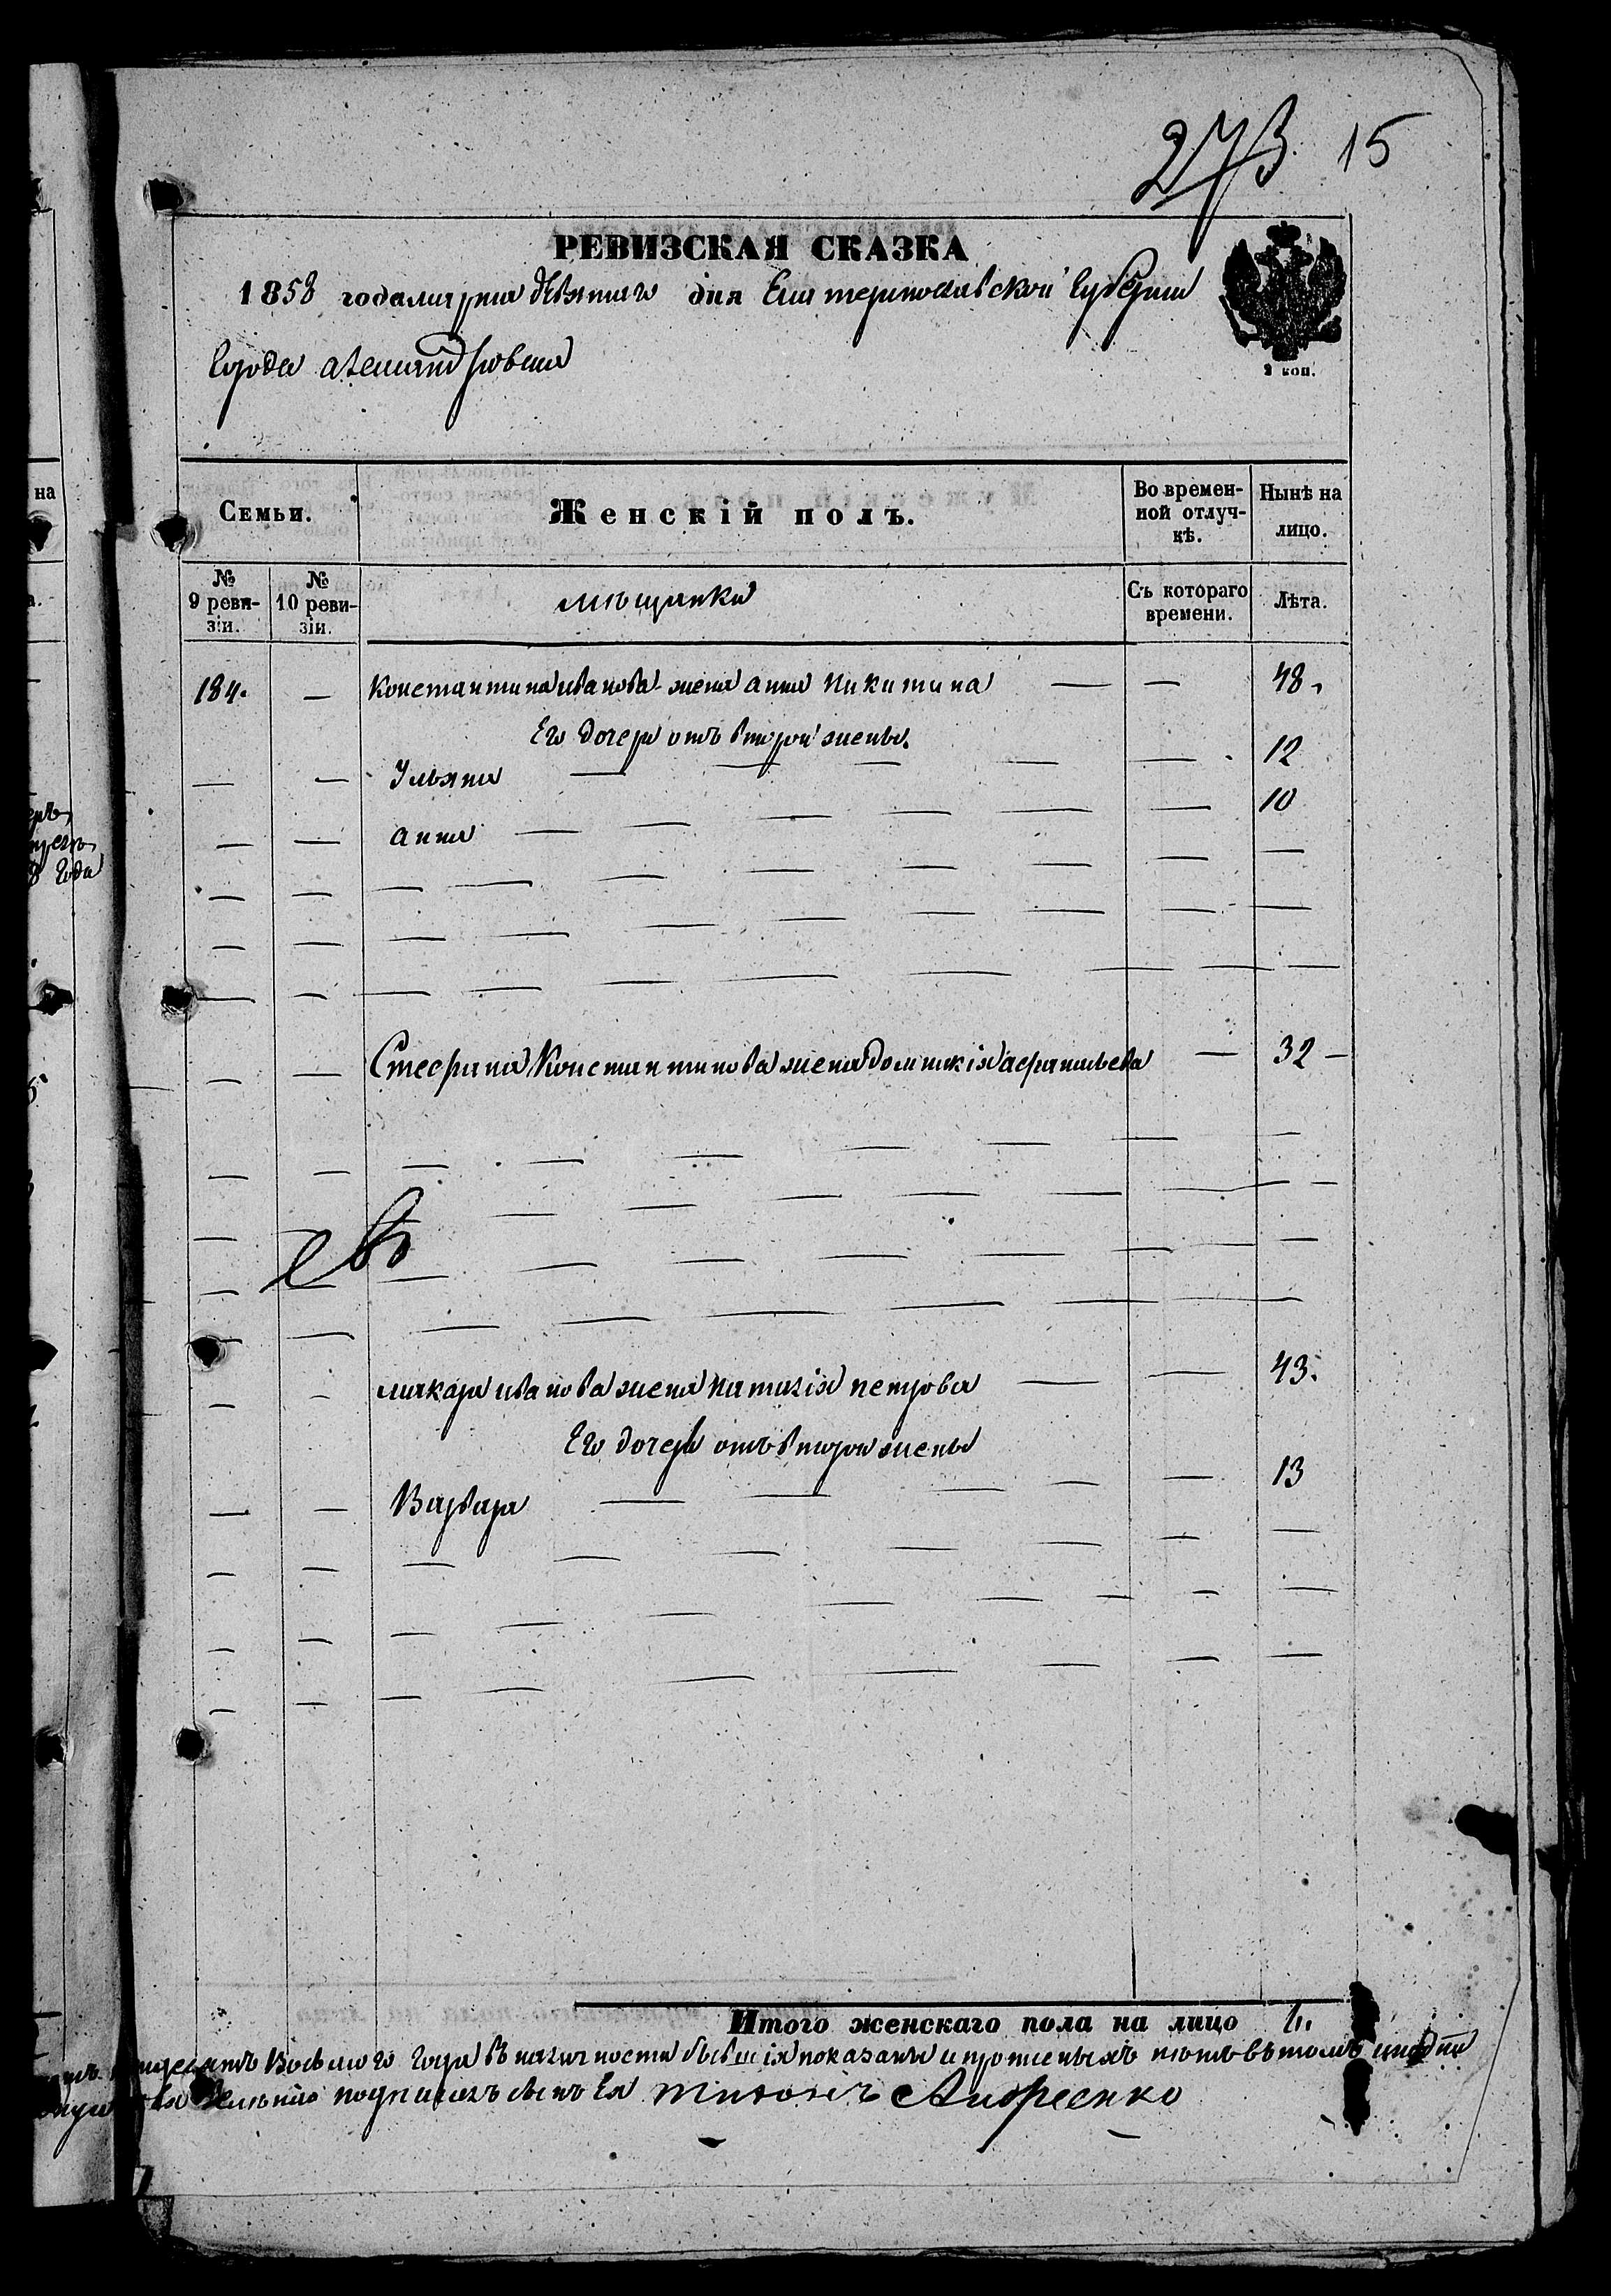 273 15
РЕВИЗСКАЯ СКАЗКА
1858 года марта девятаго дня Екатеринославской Губернии
2 коп.
Города александровска
на
Семьи.
Женскiй полъ.
Во времен-
ной отлуч-
кѣ.
Нынѣ на
лицо.
№
9 реви-
зiи.
№
10 реви-
зiи.
мѣщанки
Съ котораго
времени.
Лѣта.
184. — Константина иванова жена анна никитина — — 48.
Его дочери отъ второй жены.
— — Ульяна — — — — — 12
— — анна — — — — — — 10
года
— — Стефана Константинова жена домникiя афанасьева — 32 —
— — макара иванова жена наталiя петрова — — 43.
Его дочерь отъ второй жены
— — Варвара — — — — — 13
Итого женскаго пола на лицо 6.
Восьмого года въ наличности бывшiя показаны и прописныхъ нетъ вътомъ
подписалъ сынъ Ея Андреенко